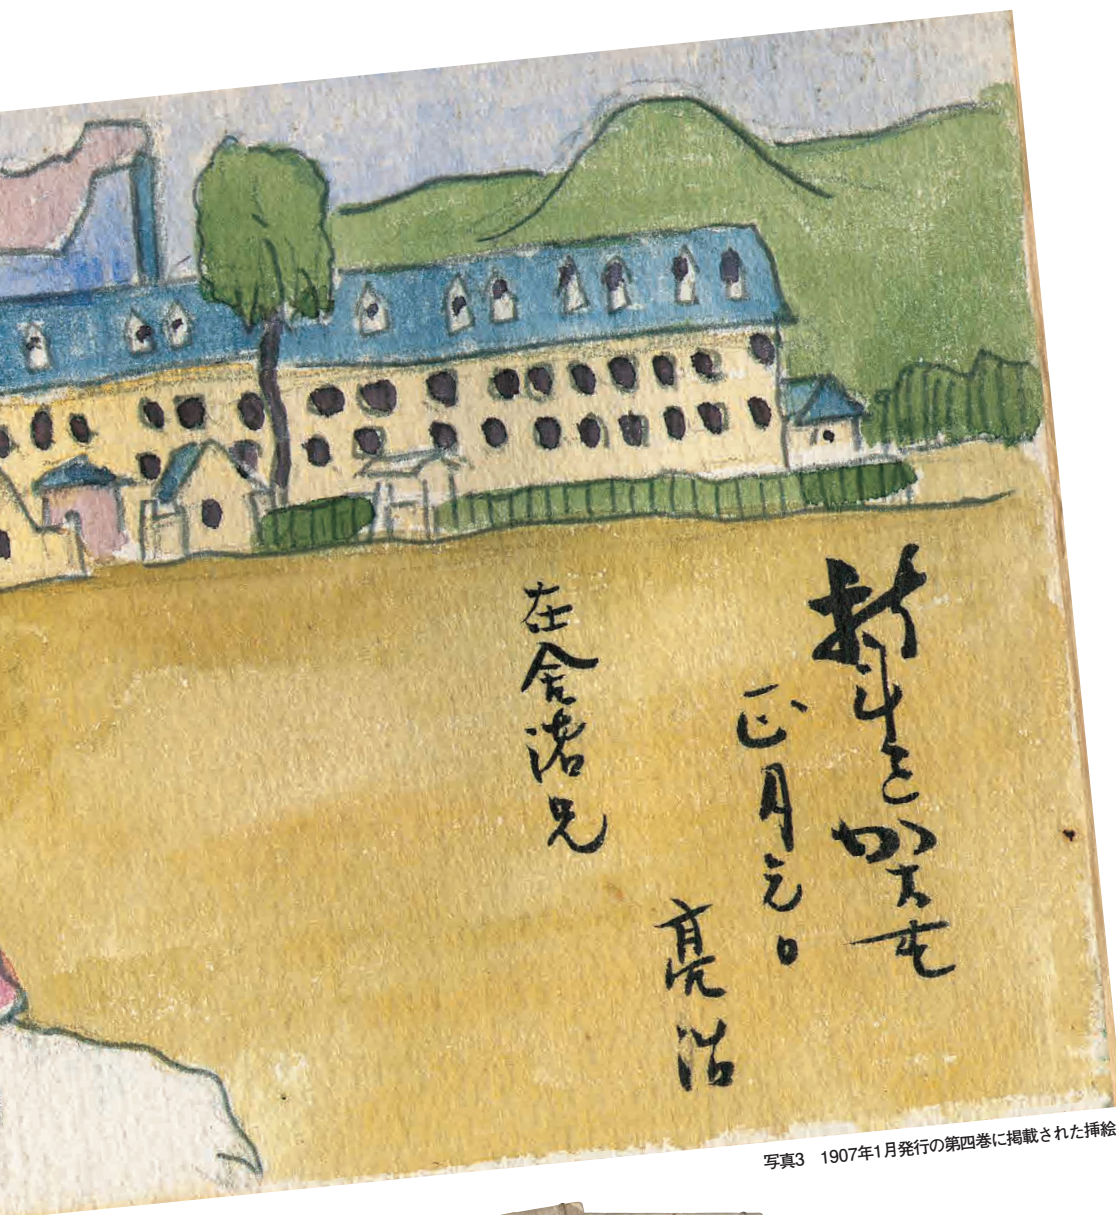 正月元日
亮
在舎諸兄
写真3　1907年1月発行の第四巻に掲載された挿絵